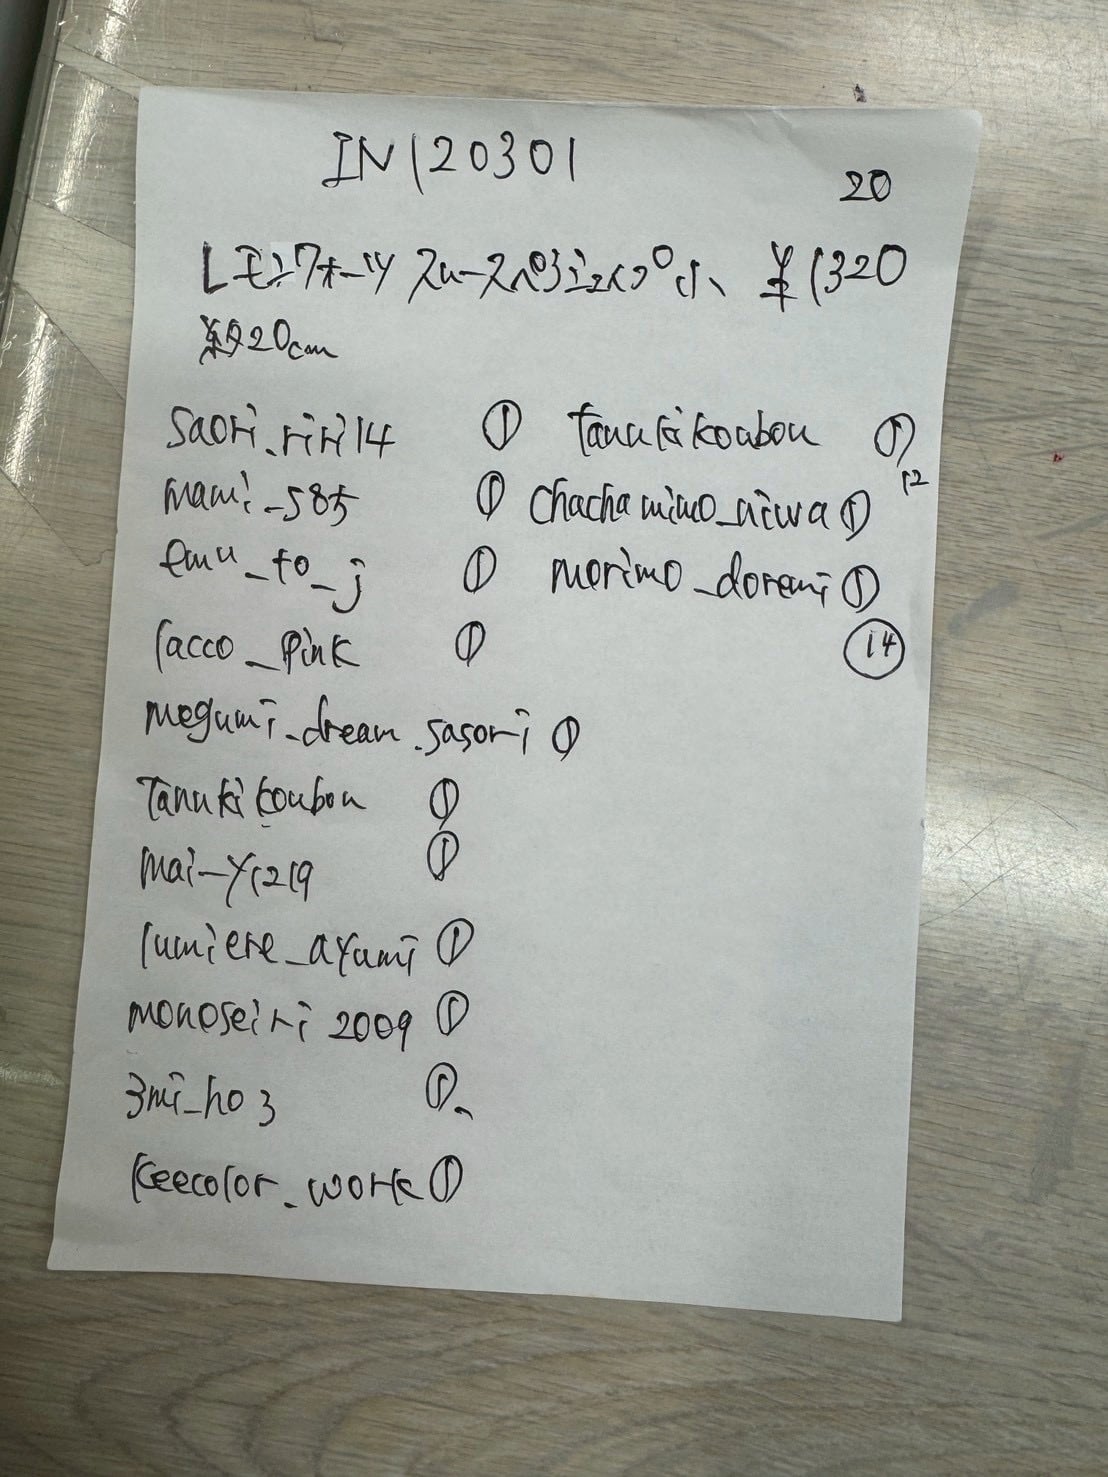 IN120301
20
レモンクォーツ スムースペアシェイプ 小 ¥1320
約20cm
saori.riri14 ①
mami_585 ①
emu_to_j ①
racco_pink ①
megumi_dream.sasori ①
tanukikoubou ①
mai-y1219 ①
lumiere_ayumi ①
monoseiri2009 ①
3mi_ho3 ①
keecolor_work ①
tanukikoubou ①
12
chachamimo_niwa ①
morimo_doremi ①
⑭